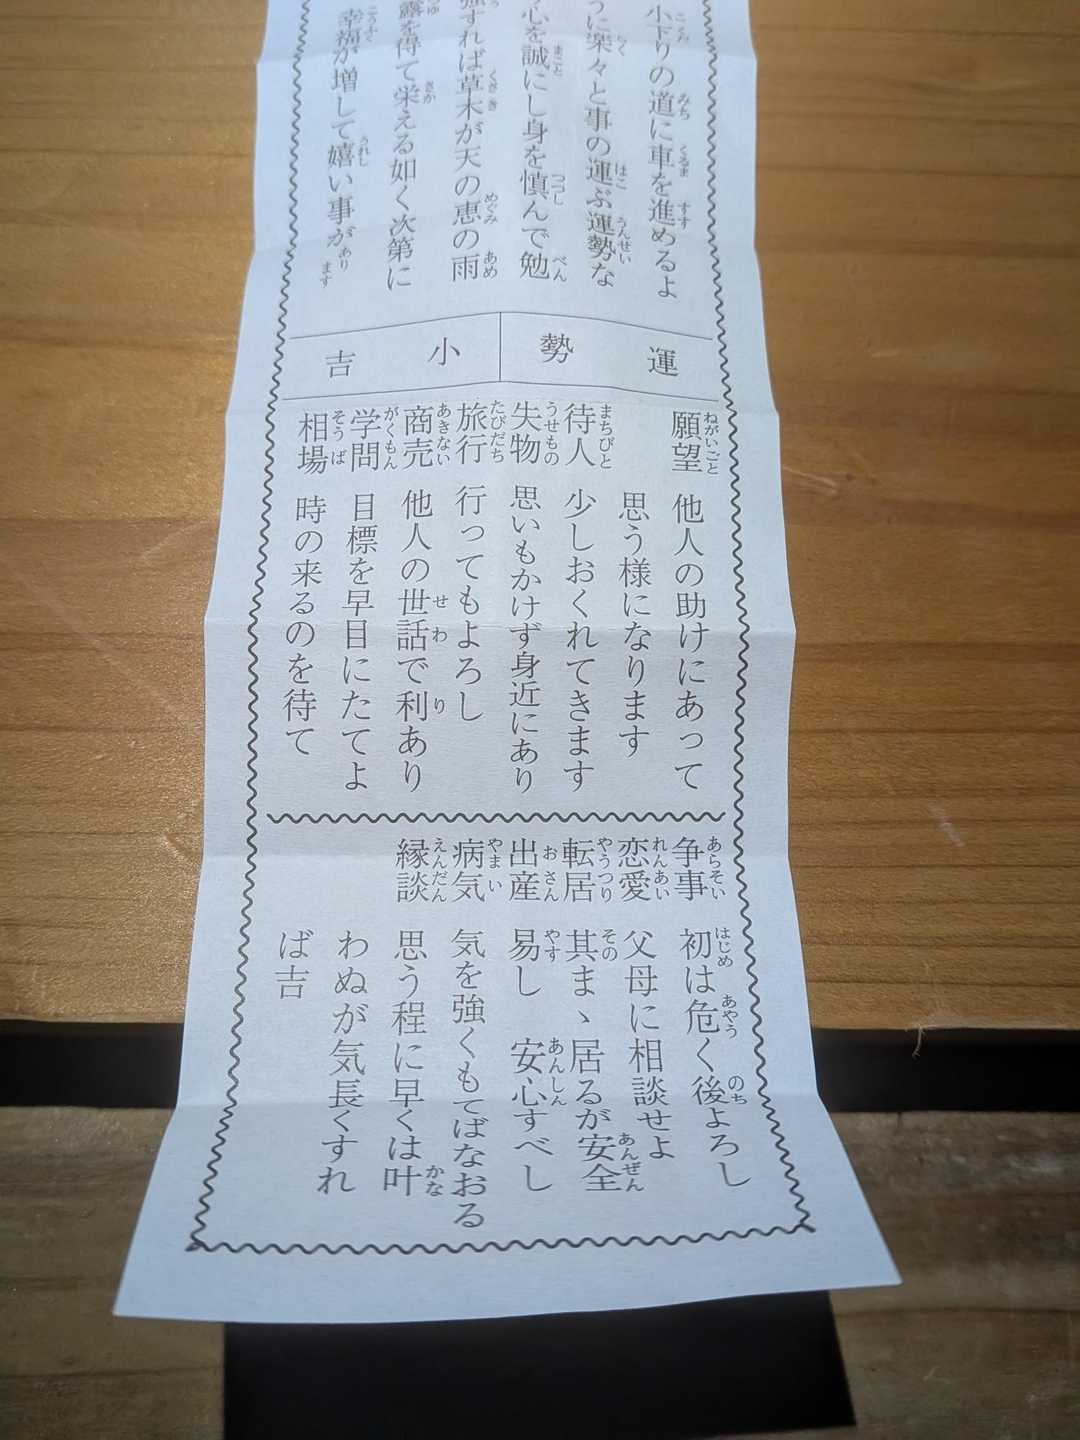 小下りの道に車を進めるよ
うに楽々と事の運ぶ運勢な
心を誠にし身を慎んで勉
強すれば草木が天の恵の雨
露を得て栄える如く次第に
幸福が増して嬉い事があります
運勢 小吉
願望 他人の助けにあって
思う様になります
待人 少しおくれてきます
失物 思いもかけず身近にあり
旅行 行ってもよろし
商売 他人の世話で利あり
学問 目標を早目にたてよ
相場 時の来るのを待て
争事 初は危く後よろし
恋愛 父母に相談せよ
転居 其まゝ居るが安全
出産 易し 安心すべし
病気 気を強くもてばなおる
縁談 思う程に早くは叶
わぬが気長くすれ
ば吉